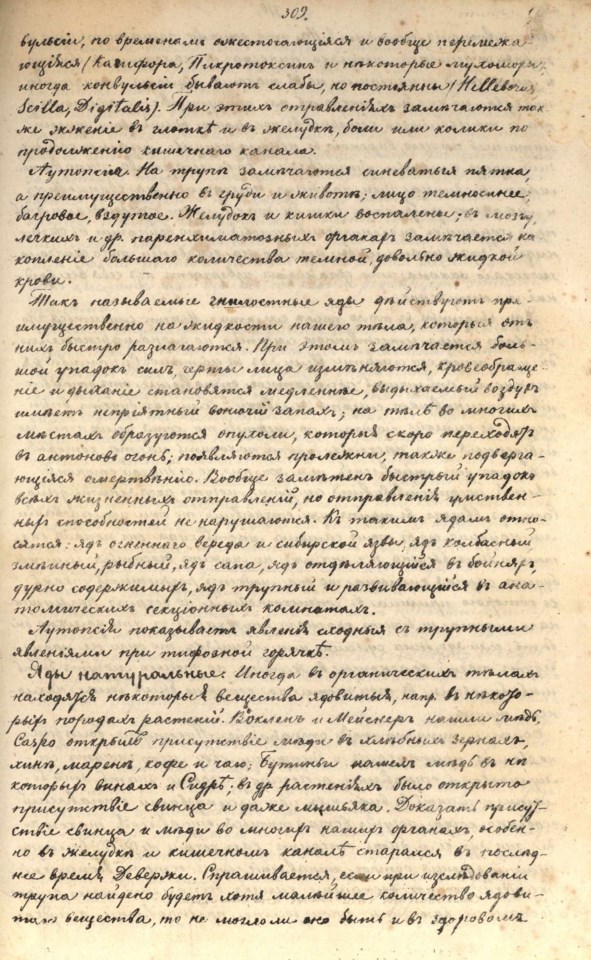 309.
вульсіи, по временамъ ожесточающіяся и вообще перемежа-
ющіяся (Камфора, Пикротоксинъ и нѣкоторые мухоморы;
иногда конвульсіи бываютъ слабы, но постоянны (Helleborus,
Scilla, Digitalis). При этихъ отравленіяхъ замѣчаются так-
же жженіе въ глоткѣ и въ желудкѣ, боли или колики по
продолженію кишечнаго канала.
Аутопсія На трупѣ замѣчаются синеватыя пятна,
а преимущественно въ груди и животѣ; лицо темносинее,
багровое, вздутое. Желудокъ и кишки воспалены; въ мозгу,
легкихъ и др. паренхиматозныхъ органахъ замѣчается на-
копленіе большаго количества темной, довольно жидкой
крови.
Такъ называемые гнилостные яды дѣйствуютъ пре-
имущественно на жидкости нашего тѣла, которыя отъ
нихъ быстро разлагаются. При этомъ замѣчается боль-
шой упадокъ силъ, черты лица измѣняются, кровеобраще-
ніе и дыханіе становятся медленнѣе, выдыхаемый воздухъ
имѣетъ непріятный вонючій запахъ; на тѣлѣ во многихъ
мѣстахъ образуются опухоли, которыя скоро переходятъ
въ антоновъ огонь; появляются пролежни, также подверга-
ющіяся омертвѣнію. Вообще замѣтенъ быстрый упадокъ
всѣхъ жизненныхъ отправленій, но отправленія умствен-
ныхъ способностей не нарушаются. Къ такимъ ядамъ отно-
сятся: ядъ огненнаго вереда и сибирской язвы, ядъ колбасный
змѣиный, рыбный, ядъ сапа, ядъ отдѣляющійся въ бойняхъ,
дурно содержимыхъ, ядъ трупный и развивающійся въ ана-
томическихъ секціонныхъ комнатахъ.
Аутопсія показываетъ явленія сходныя съ трупными
явленіями при тифозной горячкѣ.
Яды натуральные. Иногда въ органическихъ тѣлахъ
находятся нѣкоторыя вещества ядовитыя, напр. въ нѣкото-
рыхъ породахъ растеній. Вокленъ и Мейснеръ нашли мѣдь,
открылъ присутствіе мѣди въ хлѣбныхъ зернахъ,
хинѣ, маренѣ, кофе и чаю; Бутиньи нашелъ мѣдь въ нѣ-
которыхъ винахъ и Сидрѣ; въ др. растеніяхъ было открыто
присутствіе свинца и даже мышьяка. Доказать присут-
ствіе свинца и мѣди во многихъ нашихъ органахъ, особен-
но въ желудкѣ и кишечномъ каналѣ старался въ послѣд-
нее время Девержи. Спрашивается, если при изслѣдованіи
трупа найдено будетъ хотя малѣйшее количество ядови-
таго вещества, то не могло ли оно быть и въ здоровомъ